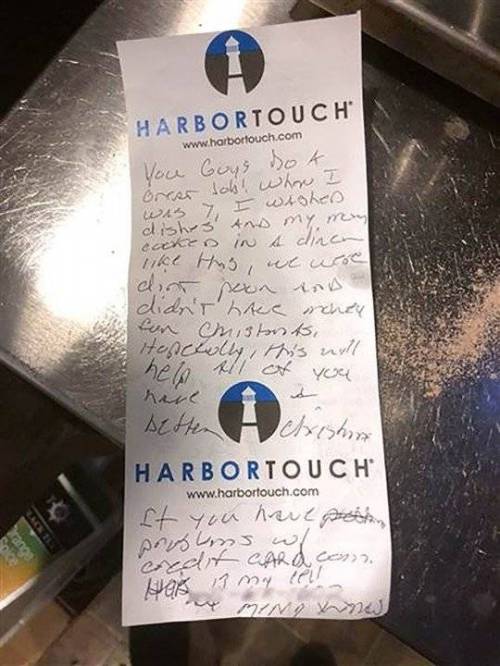 HARBORTOUCH®
www.harbortouch.com
You Guys Do A
Great Job! When I
was 7, I washed
dishes and my mom
cooked in a diner
like this, we were
dirt poor and
didn't have money
for Christmas.
Hopefully, this will
help all of you
have a
better Christmas
HARBORTOUCH®
www.harbortouch.com
If you have
problems w/
credit card com.
is my cell
Merry Xmas